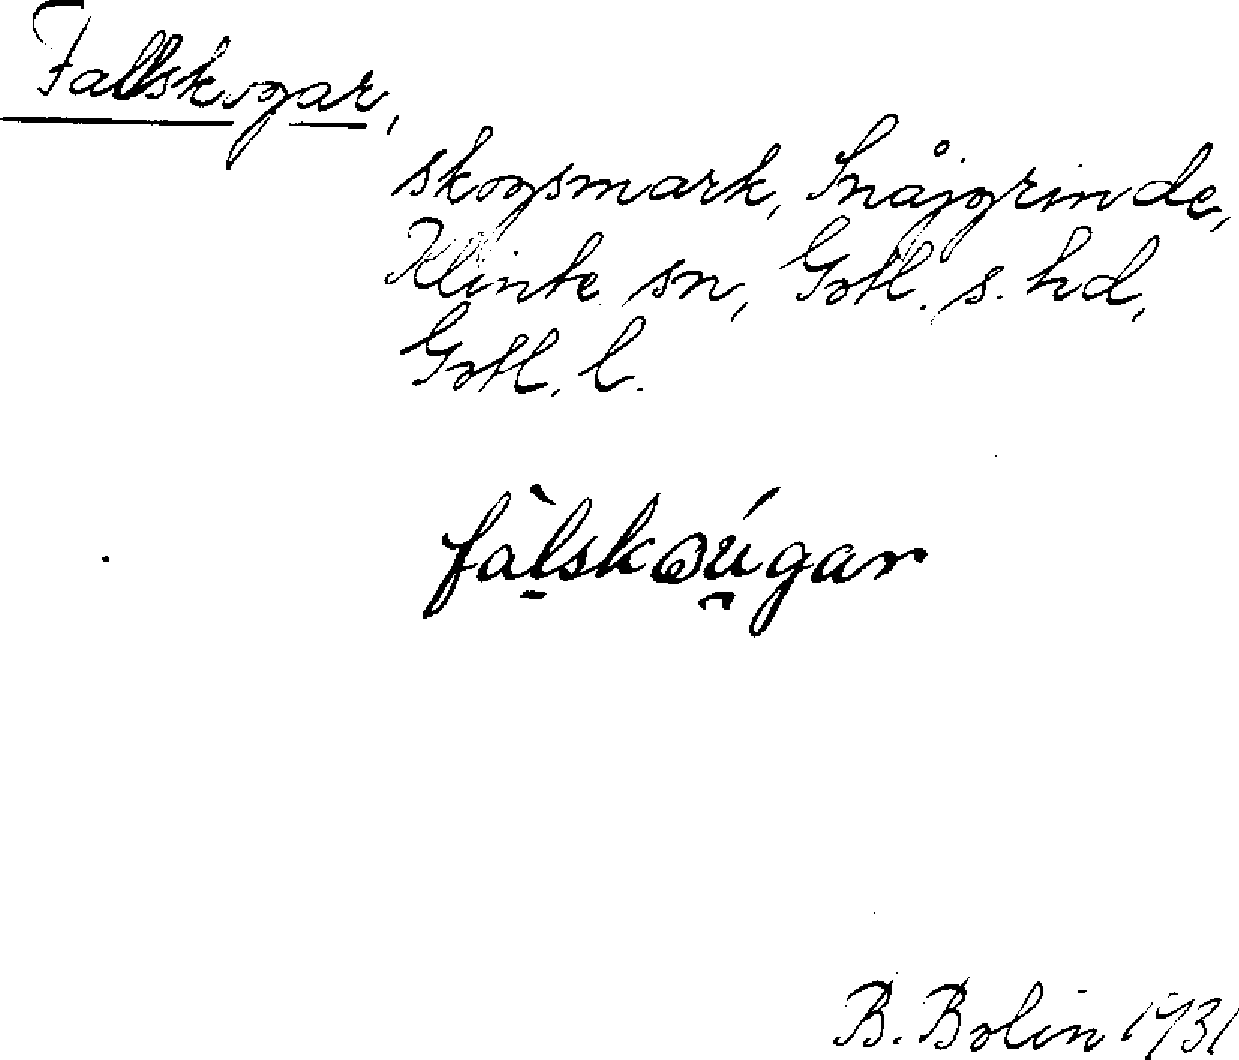 Fallskogar,
skogsmark, Snåjgrinde,
Klinte sn, Gotl. s. hd,
Gotl. l.
fàl̠skωú̯gar
B. Bolin 1931